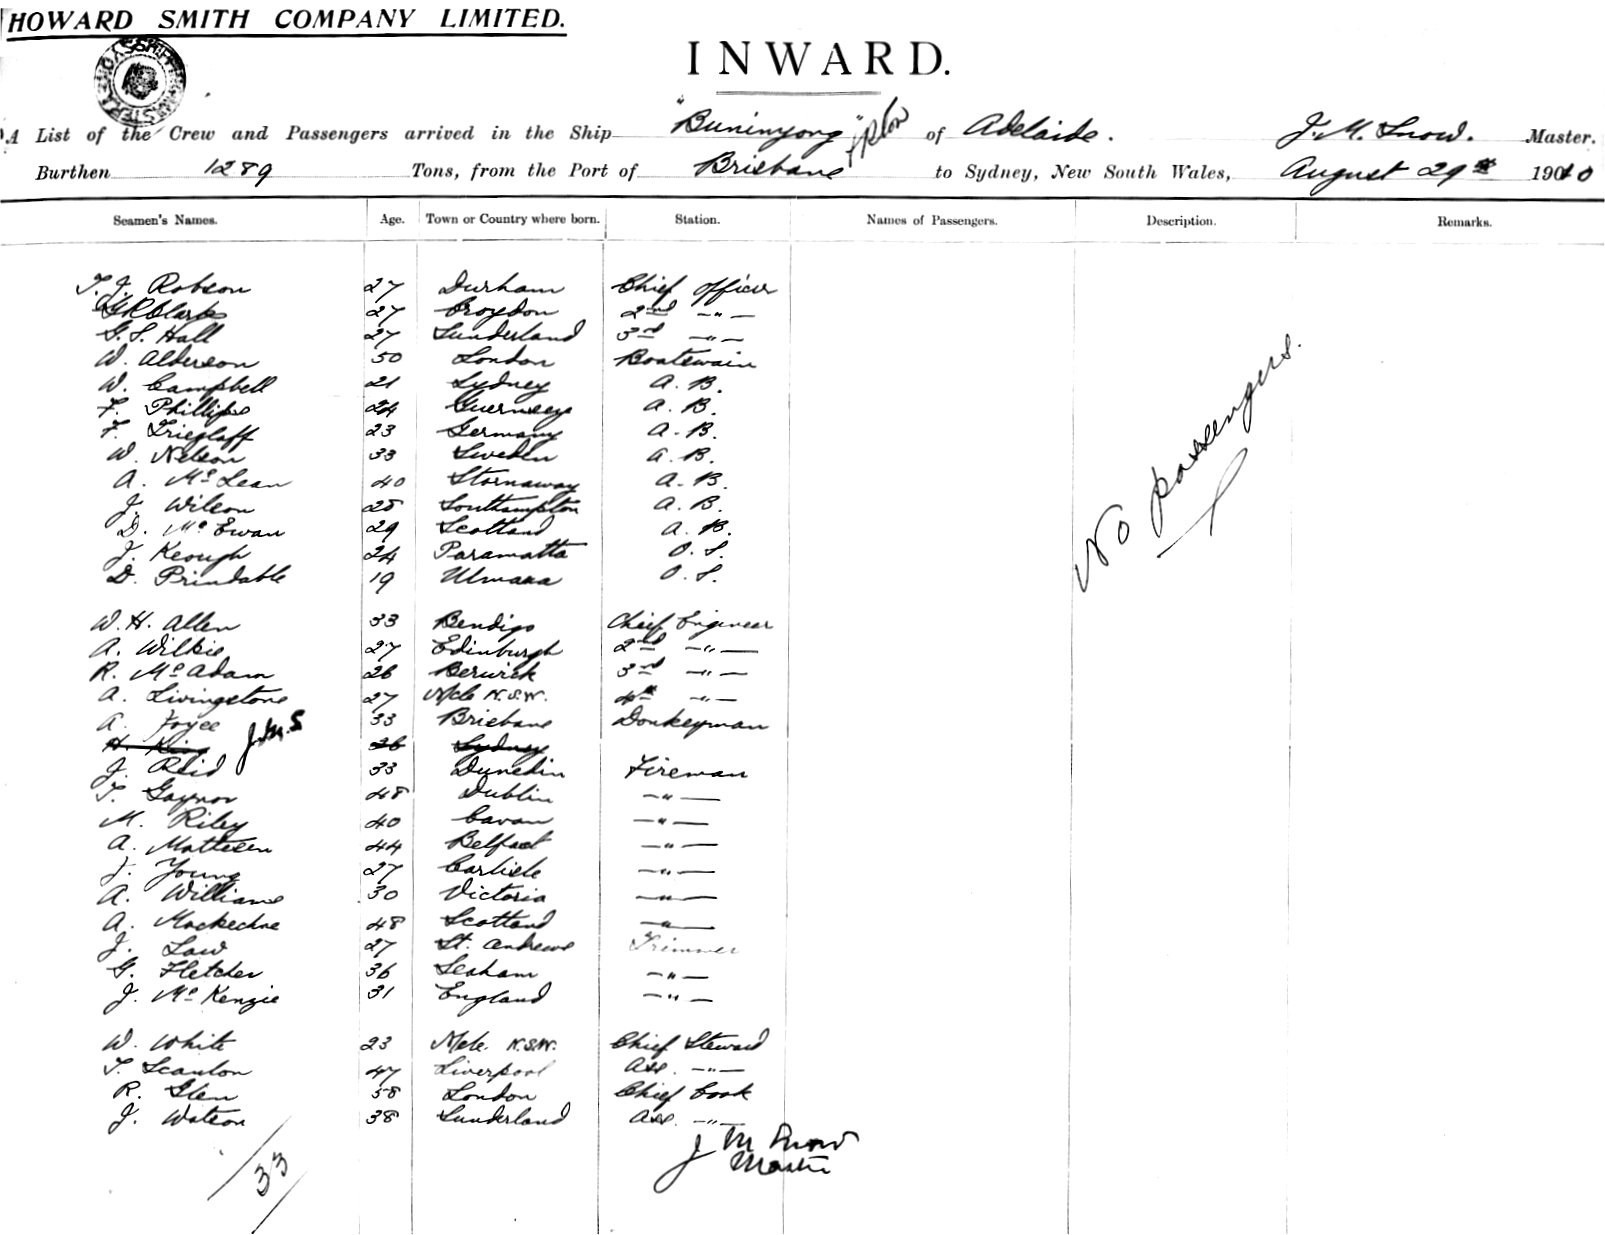 HOWARD SMITH COMPANY LIMITED.
INWARD.
A List of the Crew and Passengers arrived in the Ship "Buninyong" of Adelaide. J. M. Snow. Master.
Burthen 1289 Tons, from the Port of Brisbane to Sydney, New South Wales, August 29th 1910
Seamen's Names. Age. Town or Country where born. Station. Names of Passengers. Description. Remarks.
T. J. Robson 27 Durham Chief Officer
G R Clark 27 Croydon 2nd —"—
G. S. Hall 27 Sunderland 3rd —"—
W. Alderson 50 London Boatswain
W. Campbell 21 Sydney A. B.
F. Phillips 24 Guernsey A. B.
F. Trieglaff 23 Germany A. B.
W. Nelson 33 Sweden A. B.
A. McLean 40 Stornaway A. B.
J. Wilson 25 Southampton A. B.
D. McEwan 29 Scotland A. B.
J. Keough 24 Paramatta O. S.
D. Prindable 19 Ulmara O. S.
No passengers.
W. H. Allen 33 Bendigo Chief Engineer
A. Wilkie 27 Edinburgh 2nd —"—
R. McAdam 26 Berwick 3rd —"—
A. Livingstone 27 N.S.W. 4th —"—
A. Foyee 33 Brisbane Donkeyman
H. King 26 Sydney J.M.S
J. Reid 33 Dunedin Fireman
T. Gaynor 48 Dublin —"—
M. Riley 40 Cavan —"—
A. Mattesen 44 Belfast —"—
J. Young 27 Carlisle —"—
A. Williams 30 Victoria —"—
A. Mackechne 48 Scotland —"—
J. Law 27 St. Andrews Trimmer
G. Fletcher 36 Seaham —"—
J. McKenzie 31 England —"—
W. White 23 N.S.W. Chief Steward
T. Scanlon 47 Liverpool Ass. —"—
R. Glen 58 London Chief Cook
J. Watson 38 Sunderland Ass. —"—
J M Snow
Master
33